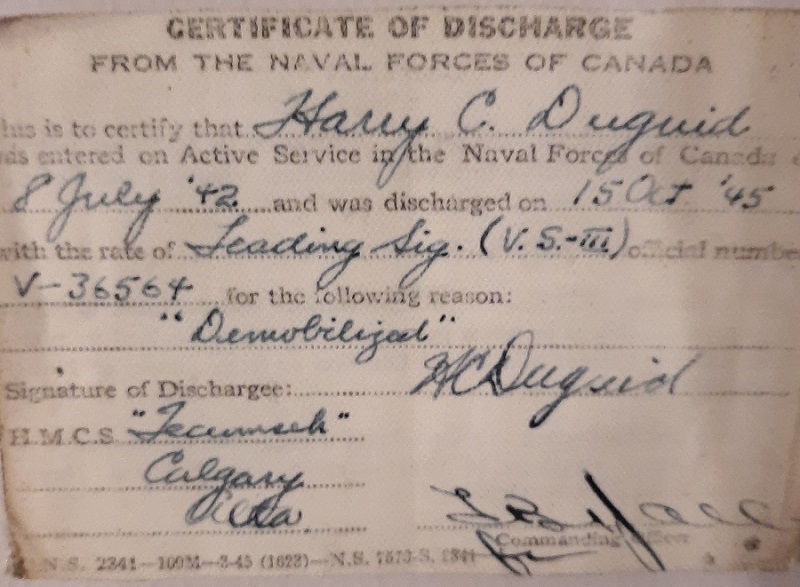 CERTIFICATE OF DISCHARGE
FROM THE NAVAL FORCES OF CANADA
his is to certify that Harry C. Duguid
as entered on Active Service in the Naval Forces of Canada
8 July '42 and was discharged on 15 Oct '45
with the rate of Leading Sig. (V.S.-III) official number
V-36564 for the following reason:
"Demobilized"
Signature of Dischargee: HC Duguid
H.M.C.S "Tecumseh"
Calgary
Alta.
Commanding Officer
N.S. 2341-100M-3-45 (1623)-N.S.